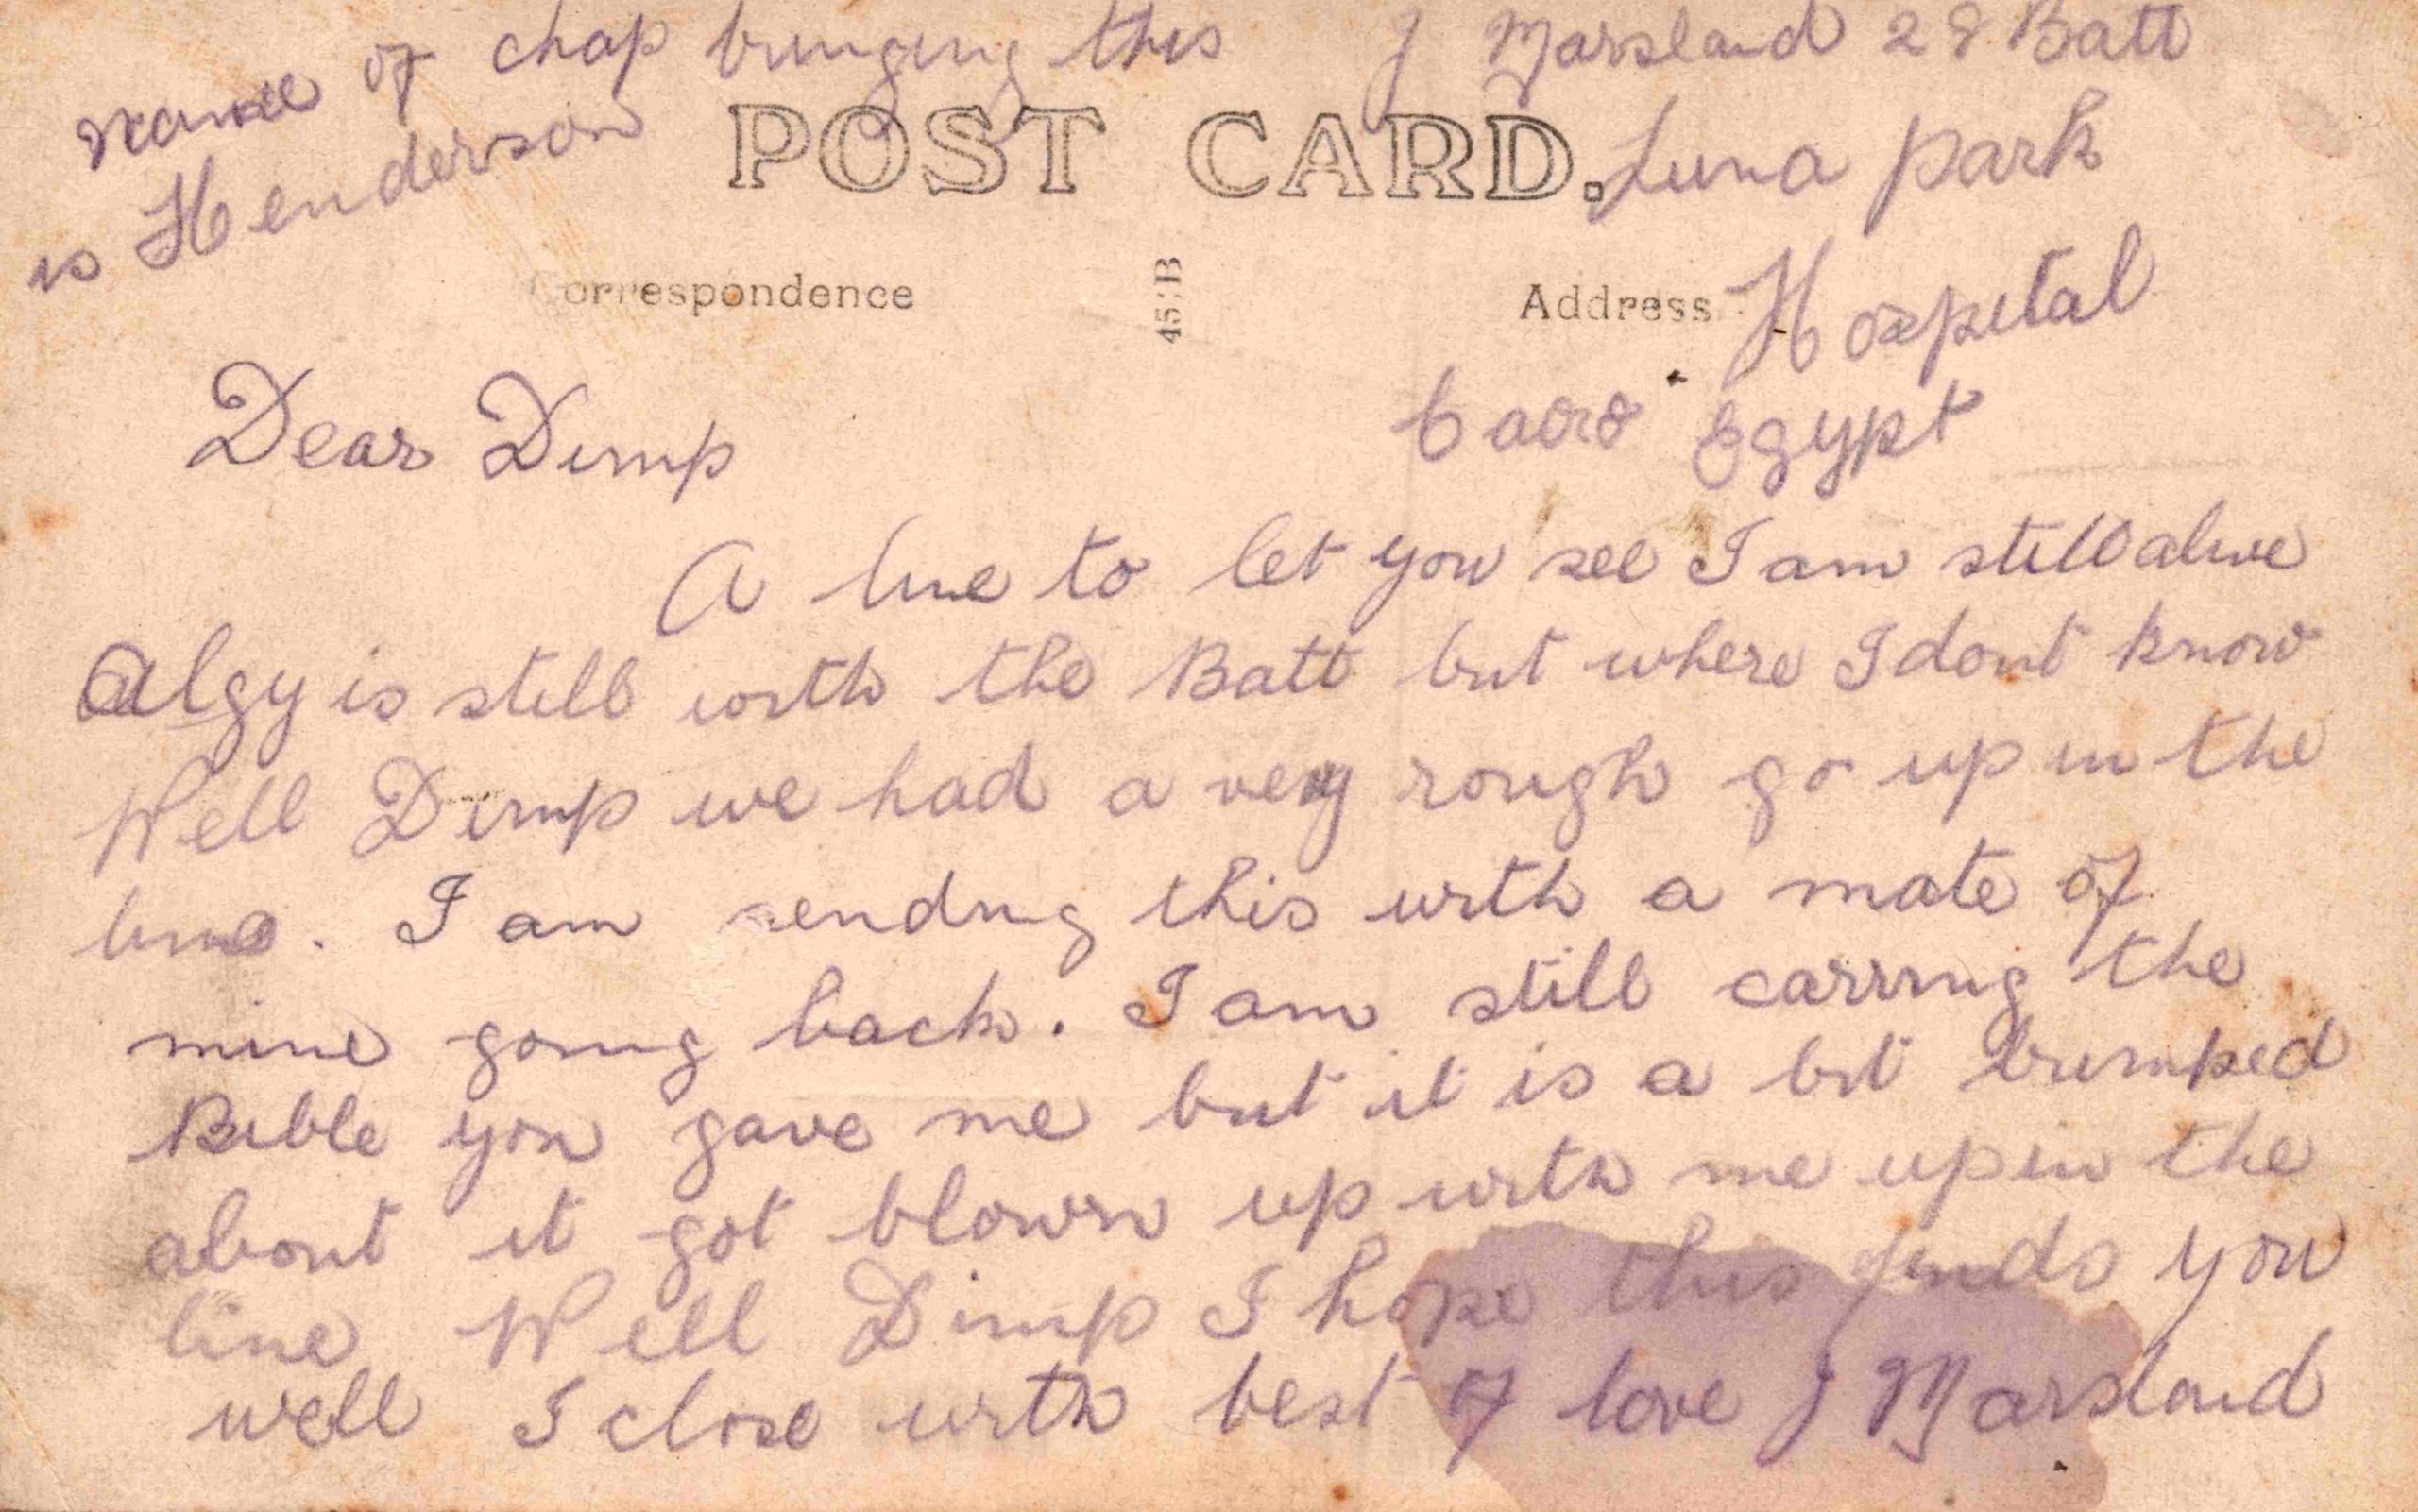 Name of chap bringing this
is Henderson
J Marsland 28 Batt
POST CARD.
Luna Park
Correspondence
45:B
Address
Hospital
Cairo Egypt
Dear Dimp
A line to let you see I am still alive
Algy is still with the Batt but where I dont know
Well Dimp we had a very rough go up in the
line. I am sending this with a mate of
mine going back. I am still carring the
Bible you gave me but it is a bit bumped
about it got blown up with me up in the
line Well Dimp I hope this finds you
well I close with best of love J Marsland